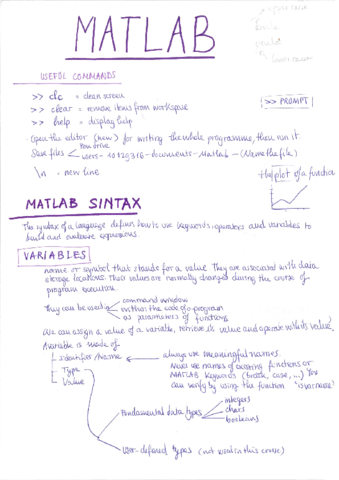 MATLAB
USEFUL COMMANDS
>> clc = clean screen
>> clear = remove items from workspace
>> help = display help
>> PROMPT
Open the editor (new) for writing the whole programme, then run it.
Save files
You drive
documents - Matlab - (Name the file)
\n = new line
plot of a function
MATLAB SINTAX
The syntax of a language defines how to use keywords, operators and variables to
build and evaluate expressions.
VARIABLES
name or symbol that stands for a value. They are associated with data
storage locations. Their values are normally changed during the course of
program execution.
They can be used in
command window
within the code of a program
as parameters of functions
We can assign a value of a variable, retrieve its value and operate with its value
A variable is made of
Identifier/Name
always use meaningful names.
Never use names of existing functions or
MATLAB keywords (break, case, ...) You
can verify by using the function 'isvarname'
Type
Value
Fundamental data types
integers
chars
booleans
User-defined types (not used in this course)